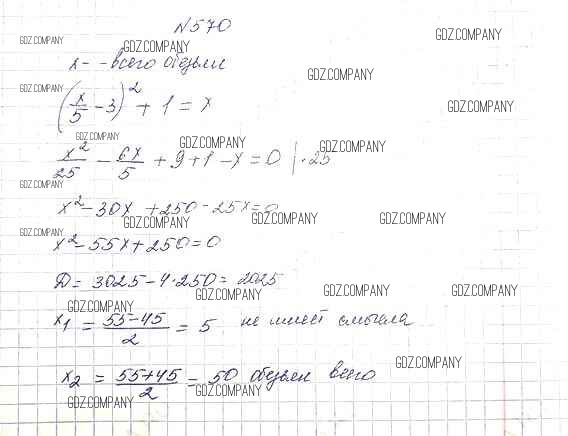 N570
GDZ.COMPANY GDZ.COMPANY GDZ.COMPANY
x - всего обезьян
GDZ.COMPANY
(x/5 - 3)² + 1 = x
GDZ.COMPANY
GDZ.COMPANY GDZ.COMPANY GDZ.COMPANY
x²/25 - 6x/5 + 9 + 1 - x = 0 | · 25
GDZ.COMPANY
x² - 30x + 250 - 25x = 0
GDZ.COMPANY GDZ.COMPANY GDZ.COMPANY GDZ.COMPANY
x² - 55x + 250 = 0
Д = 3025 - 4·250 = 2025
GDZ.COMPANY GDZ.COMPANY GDZ.COMPANY
GDZ.COMPANY
x₁ = (55-45)/2 = 5 не имеет смысла
GDZ.COMPANY
x₂ = (55+45)/2 = 50 обезьян всего
GDZ.COMPANY GDZ.COMPANY